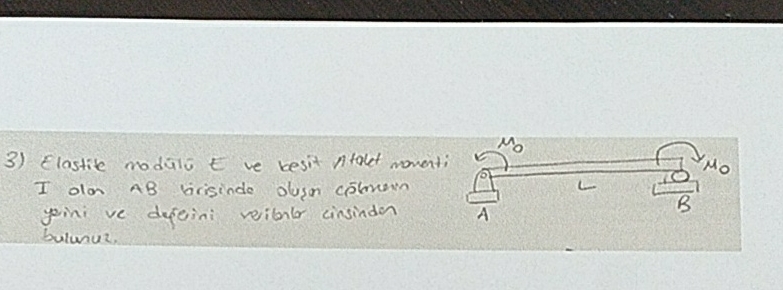 3) Elastik modülü E ve kesit Atalet momenti
I olan AB kirişinde oluşan çökmenin
yerini ve değerini veriler cinsinden
bulunuz.
M₀
M₀
L
A
B